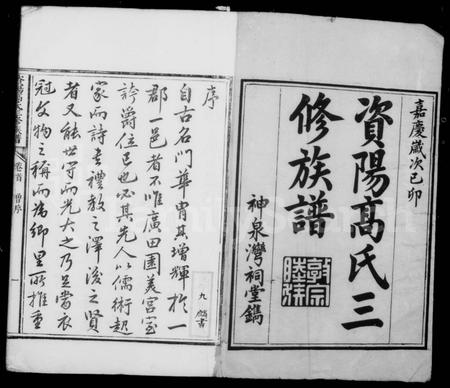 嘉慶歲次己卯
資陽高氏三
修族譜
神泉灣祠堂鐫
敦宗
睦族
序
自古名門華胄其增輝於一
郡一邑者不唯廣田園美宮室
誇爵位已也必其先人以儒術起
家而詩書禮教之澤後之賢
者又能世守而光大之乃足當衣
冠文物之稱而為鄉里所推重
卷首
一
九